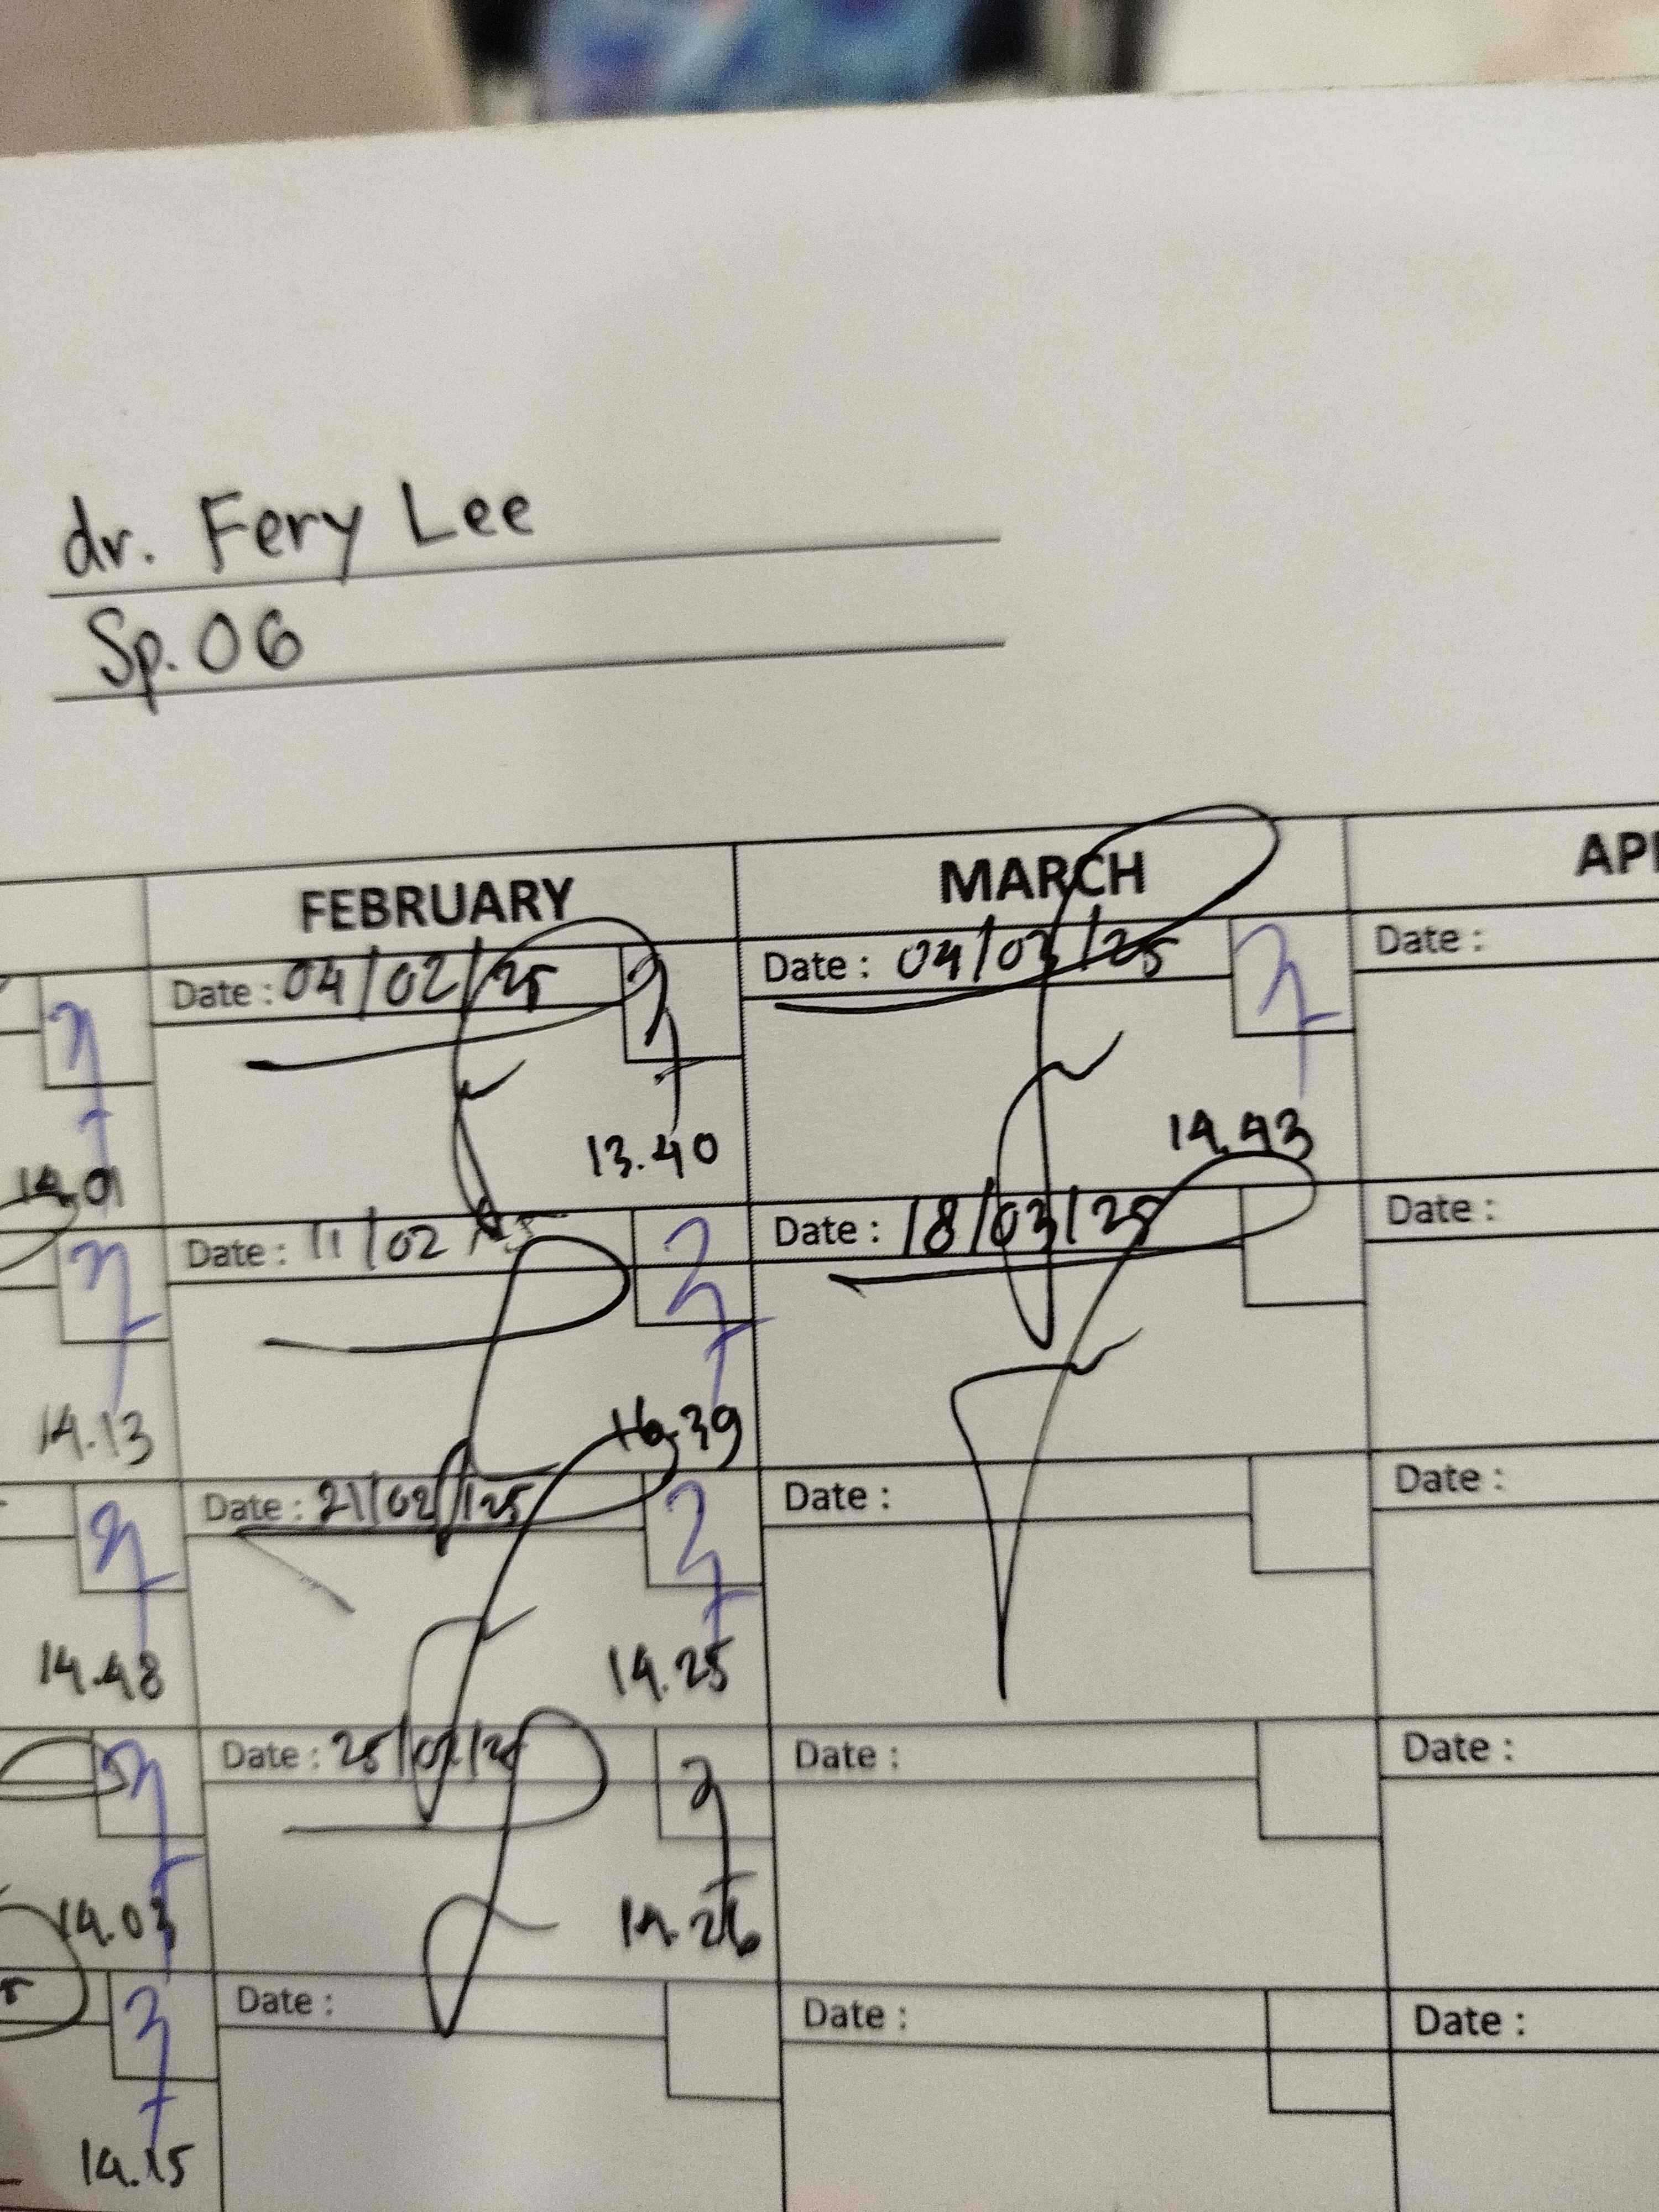 dr. Fery Lee
Sp.OG
FEBRUARY MARCH
Date : 04/02/25 Date : 04/03/25 Date :
13.40 14.43
Date : 11/02 Date : 18/03/25 Date :
14.13 16.39
Date : 21/02/25 Date : Date :
14.48 14.25
Date : 25/02/25 Date : Date :
14.03 14.26
Date : Date : Date :
14.15